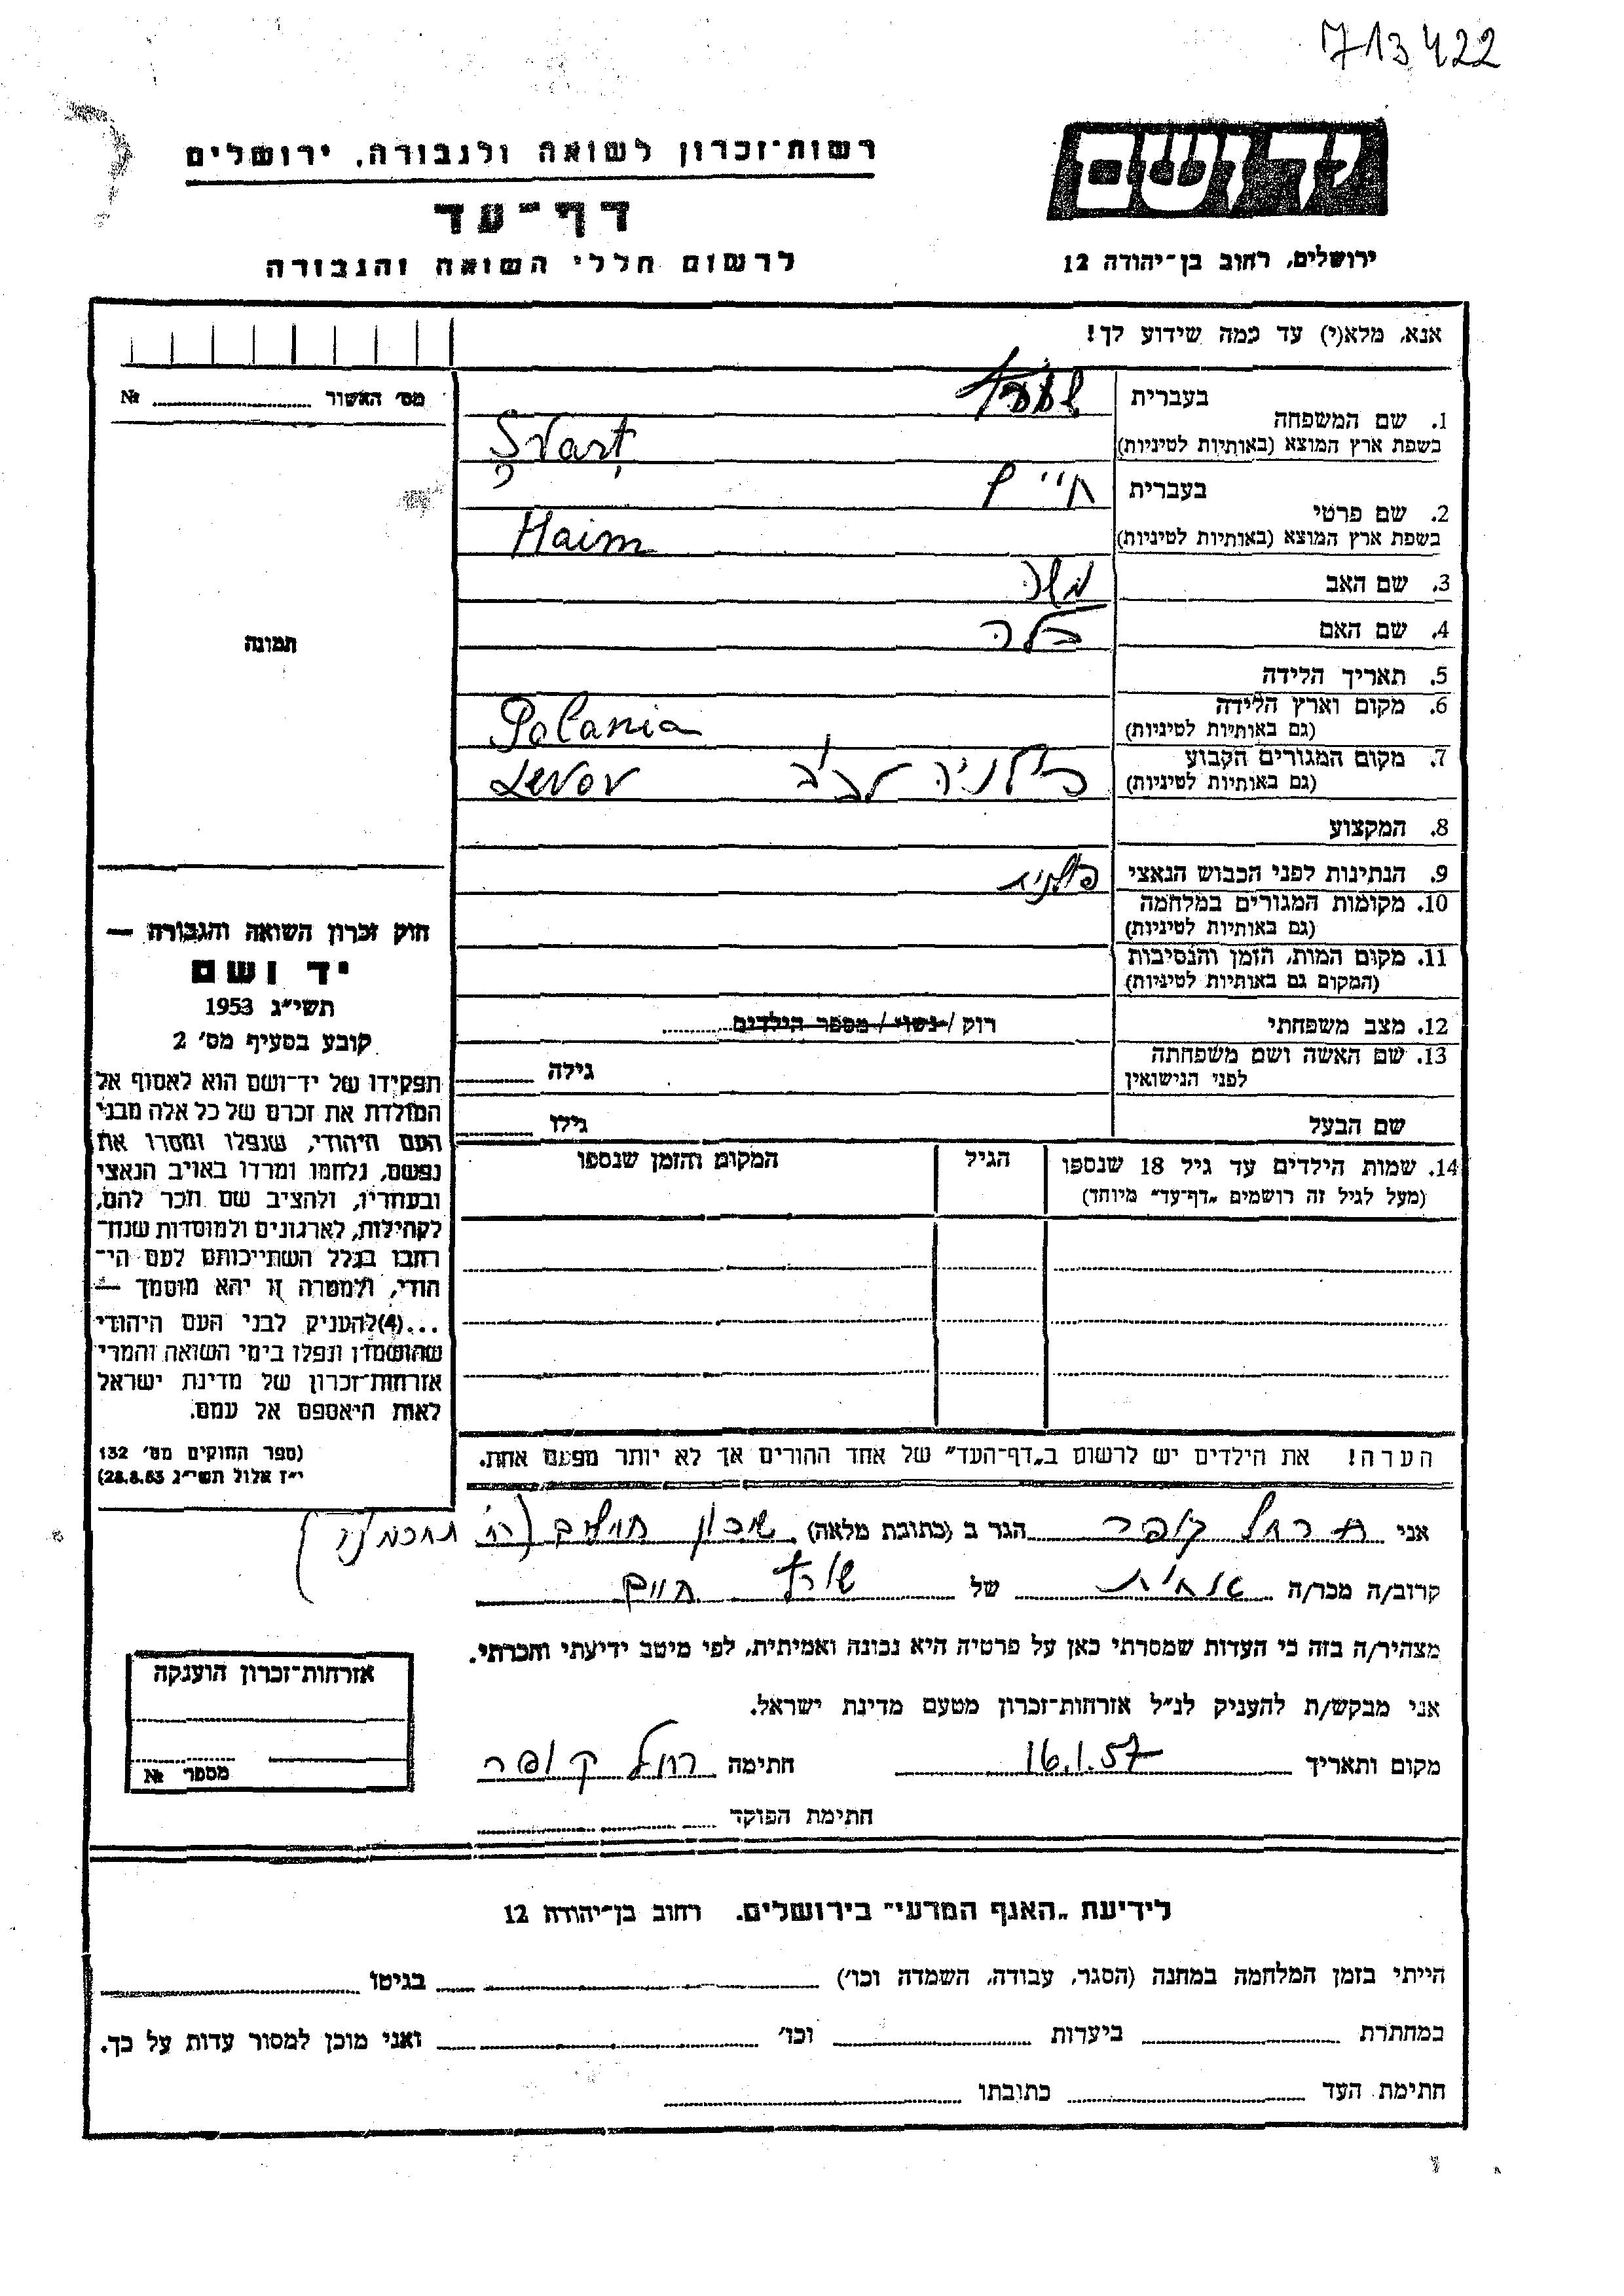 713422
רשות־זכרון לשואה ולגבורה, ירושלים
יד ושם
דף־עד
לרשום חללי השואה והגבורה
ירושלים, רחוב בן־יהודה 12
אנא, מלא(י) עד כמה שידוע לך!
מס׳ האשור № ........
בעברית
1. שם המשפחה
בשפת ארץ המוצא (באותיות לטיניות) Svart
בעברית חיים
2. שם פרטי
בשפת ארץ המוצא (באותיות לטיניות) Haim
3. שם האב משה
4. שם האם בלה
תמונה
5. תאריך הלידה
6. מקום וארץ הלידה Polania
(גם באותיות לטיניות)
7. מקום המגורים הקבוע לבוב Levov
(גם באותיות לטיניות)
8. המקצוע
9. הנתינות לפני הכבוש הנאצי פולנית
10. מקומות המגורים במלחמה
(גם באותיות לטיניות)
11. מקום המות, הזמן והנסיבות
(המקום גם באותיות לטיניות)
12. מצב משפחתי רוק / נשוי / מספר הילדים ........
13. שם האשה ושם משפחתה גילה
לפני הנישואין
שם הבעל גילו
14. שמות הילדים עד גיל 18 שנספו הגיל המקום והזמן שנספו
(מעל לגיל זה רושמים „דף־עד״ מיוחד)
חוק זכרון השואה והגבורה —
יד ושם
תשי״ג 1953
קובע בסעיף מס׳ 2
תפקידו של יד־ושם הוא לאסוף אל
המולדת את זכרם של כל אלה מבני
העם היהודי, שנפלו ומסרו את
נפשם, נלחמו ומרדו באויב הנאצי
ובעוזריו, ולהציב שם וזכר להם,
לקהילות, לארגונים ולמוסדות שנח־
רבו בגלל השתייכותם לעם הי־
הודי, ולמטרה זו יהא מוסמך —
...(4) להעניק לבני העם היהודי
שהושמדו ונפלו בימי השואה והמרי
אזרחות־זכרון של מדינת ישראל
לאות היאספם אל עמם.
(ספר החוקים מס׳ 132
י״ז אלול תשי״ג 28.8.53)
הערה! את הילדים יש לרשום ב„דף־העד״ של אחד ההורים אך לא יותר מפעם אחת.
אני רחל קופר הגר ב (כתובת מלאה) שכון
קרוב/ה מכר/ה של שורץ חיים
מצהיר/ה בזה כי העדות שמסרתי כאן על פרטיה היא נכונה ואמיתית, לפי מיטב ידיעתי והכרתי.
אני מבקש/ת להעניק לנ״ל אזרחות־זכרון מטעם מדינת ישראל.
מקום ותאריך 16.1.57 חתימה רחל קופר
חתימת הפוקד
אזרחות־זכרון הוענקה
מספר №
לידיעת „האגף המדעי״ בירושלים. רחוב בן־יהודה 12
הייתי בזמן המלחמה במחנה (הסגר, עבודה, השמדה וכו׳) בגיטו
במחתרת ביערות וכו׳ ואני מוכן למסור עדות על כך.
חתימת העד כתובתו